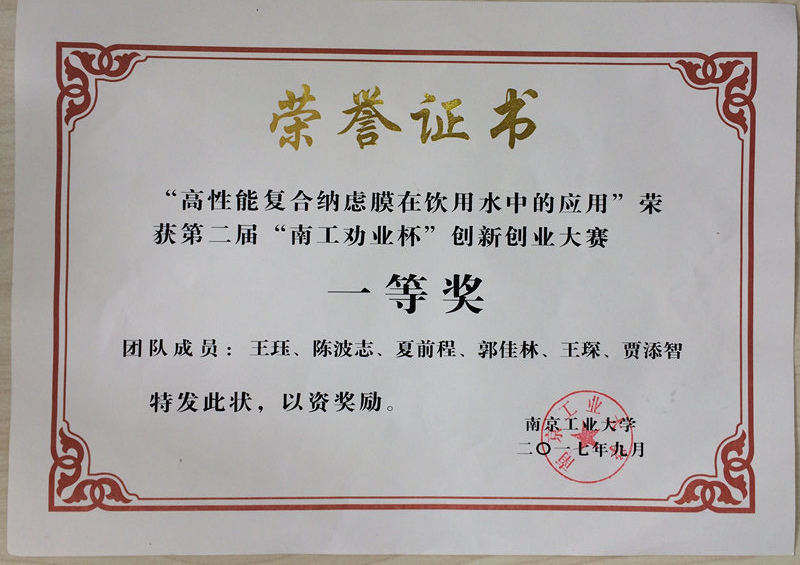 荣誉证书
“高性能复合纳虑膜在饮用水中的应用”荣
获第二届“南工劝业杯”创新创业大赛
一等奖
团队成员：王珏、陈波志、夏前程、郭佳林、王琛、贾添智
特发此状，以资奖励。
南京工业大学
二〇一七年九月
南京工业大学